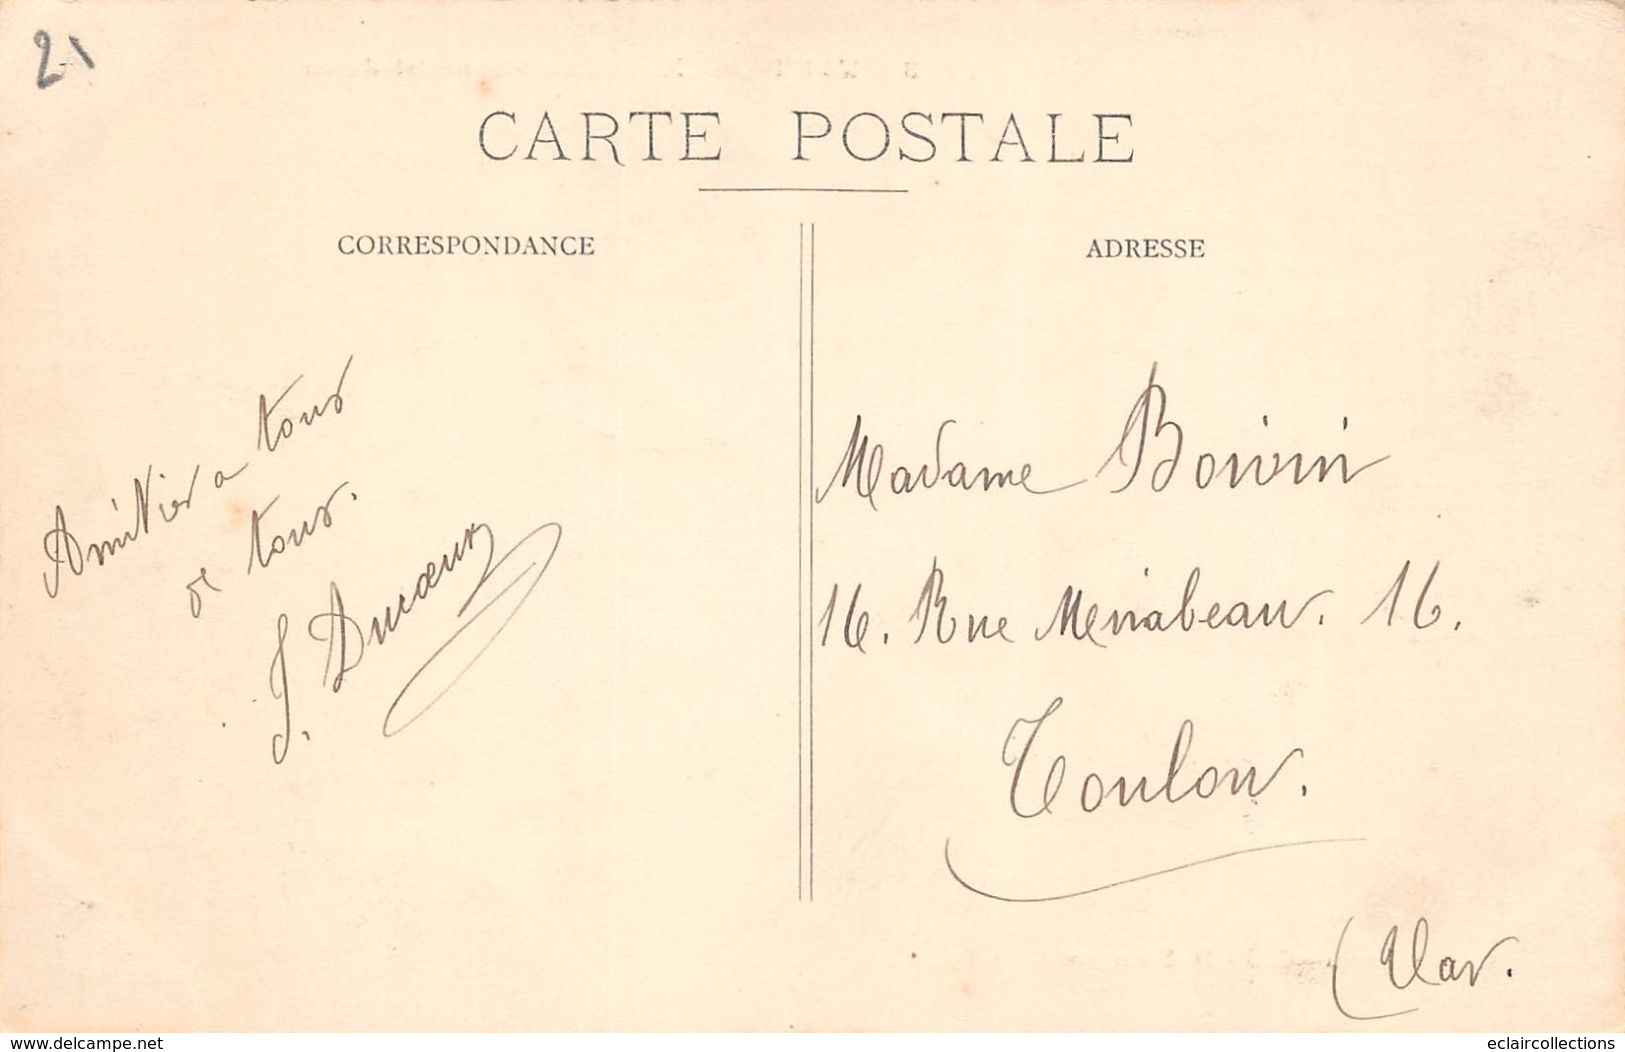 21
CARTE POSTALE
CORRESPONDANCE
ADRESSE
Amitiés a tous
de tous.
J. Ducœur
Madame Boivin
16. Rue Mirabeau. 16.
Toulon.
(Var.
www.delcampe.net
eclaircollections